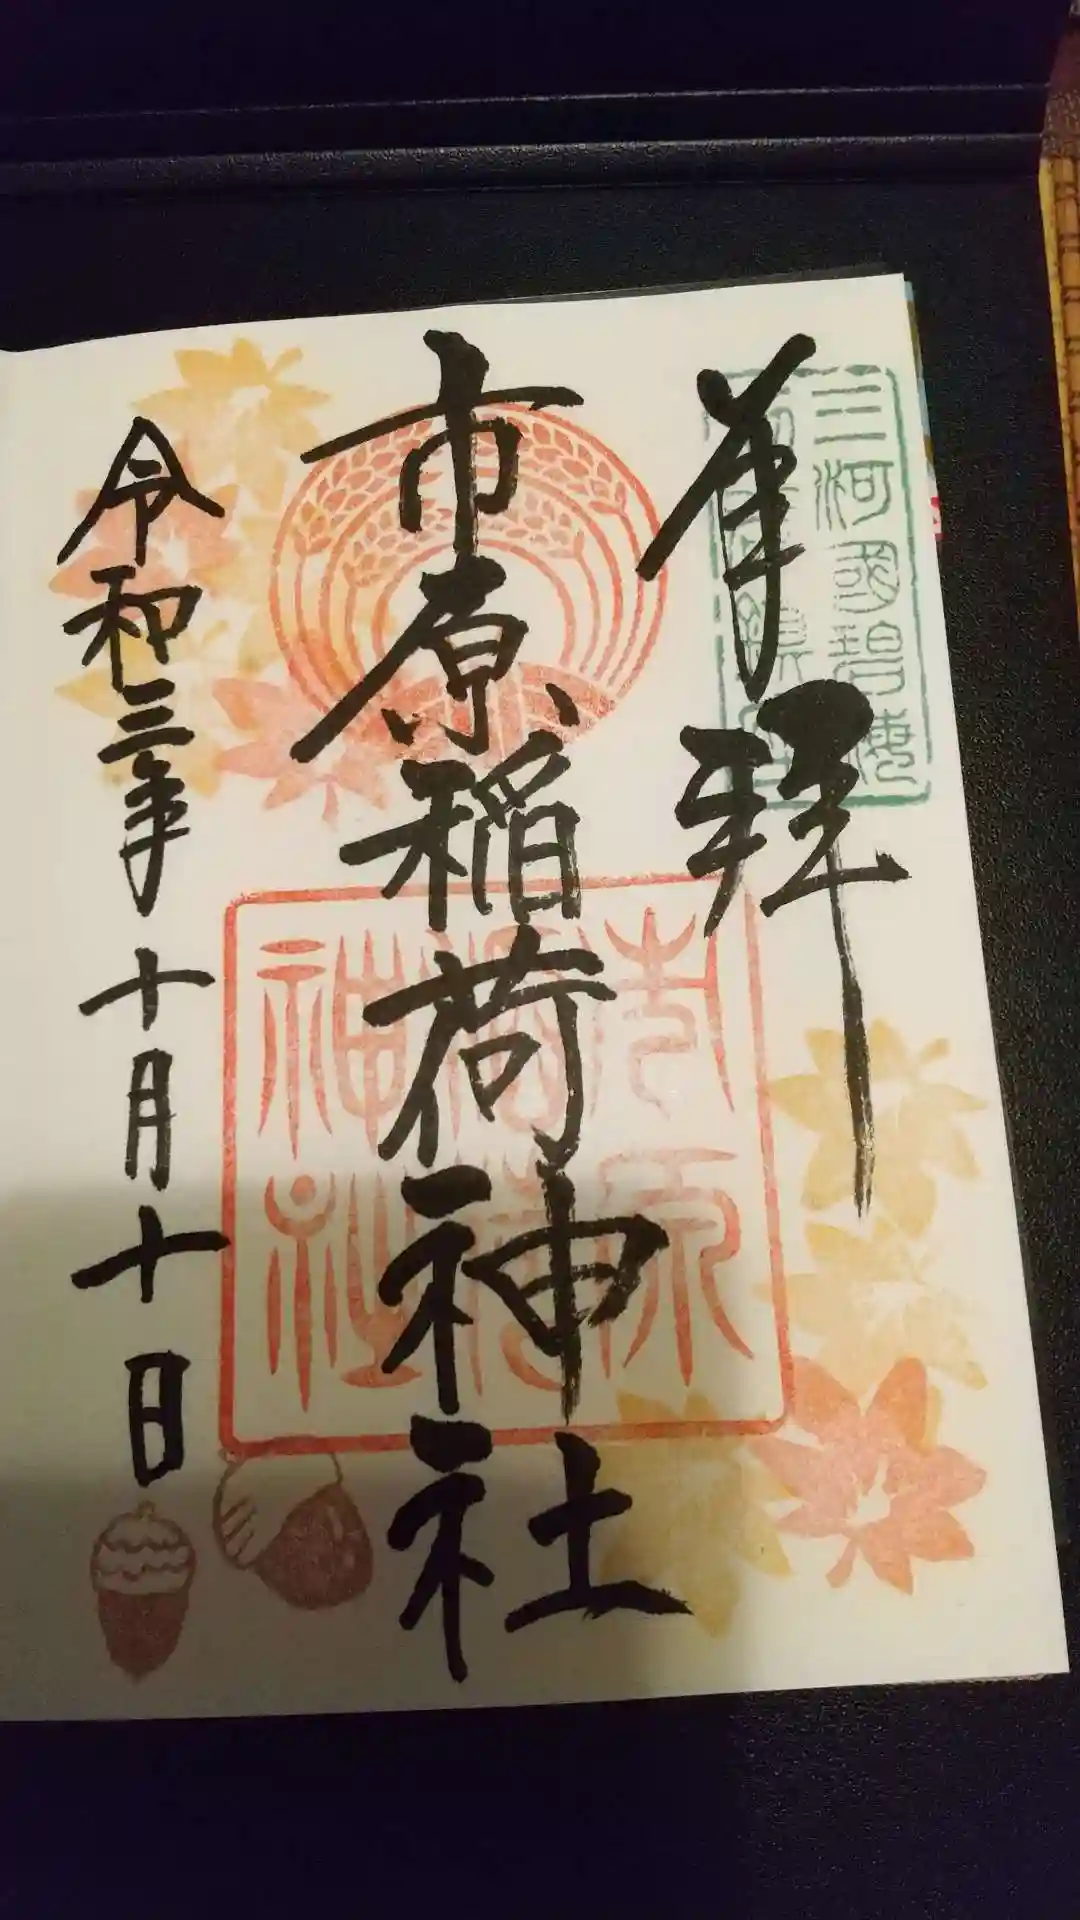 三河國碧海
奉拝
市原稲荷神社
市原
稲荷
神社
令和三年十月十日